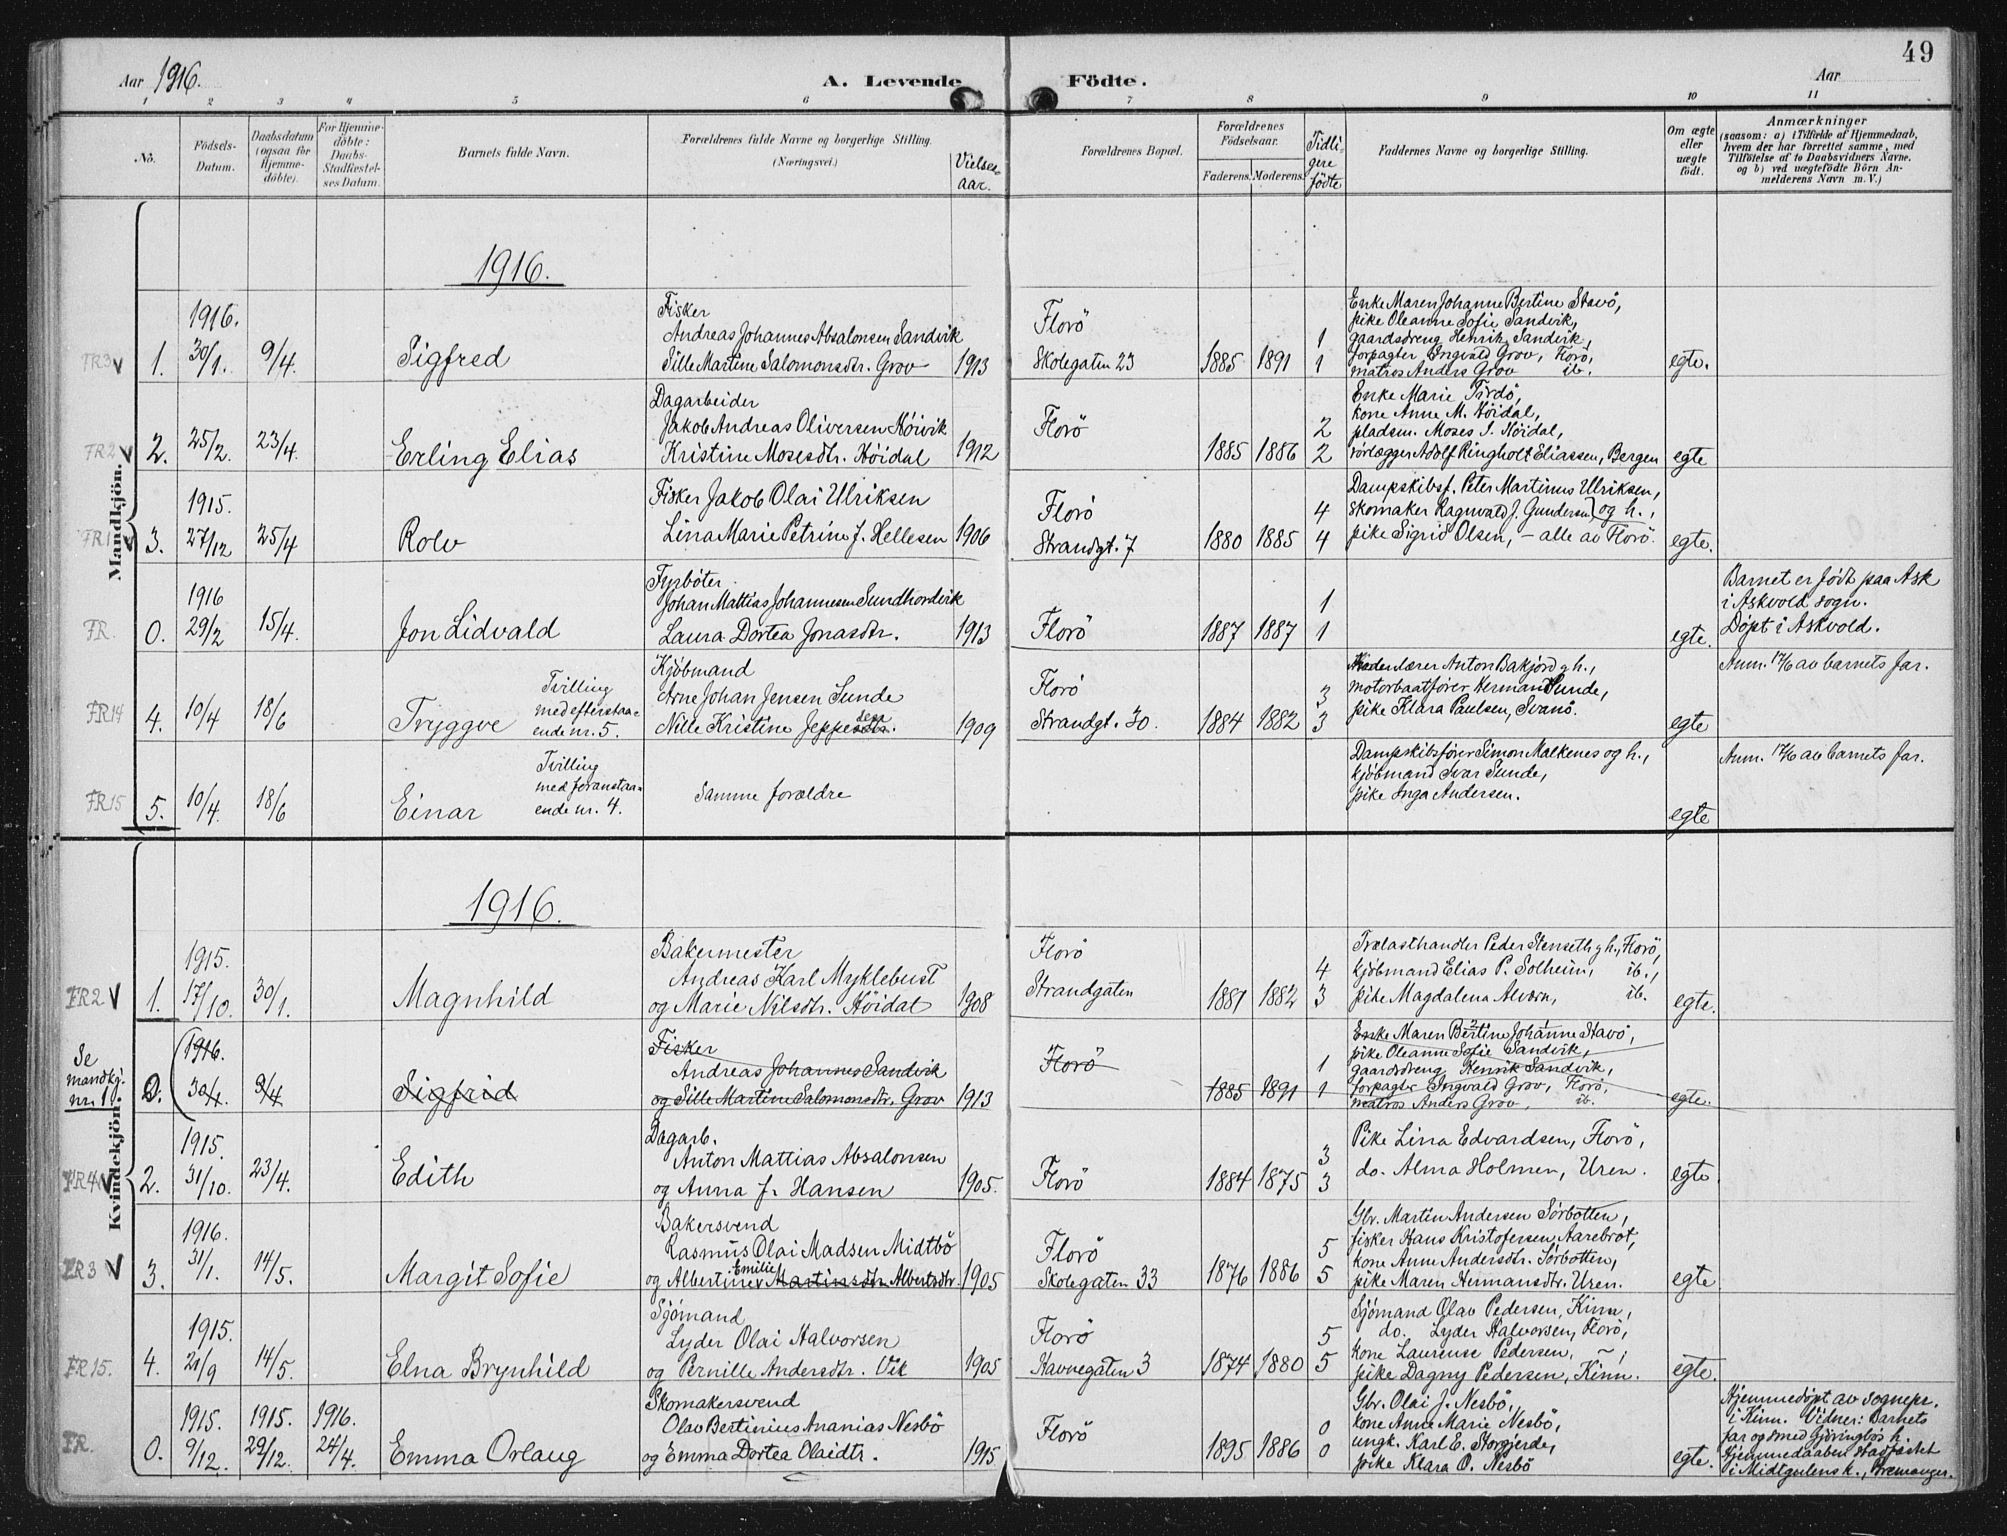 49
Aar 1916.
A. Levende Födte.
Aar
1 2 3 4 5 6 7 8 9 10 11
No.
Födsels-
Datum.
Daabsdatum
(ogsaa for
Hjemme-
döbte).
For Hjemme-
döbte:
Daabs-
Stadfæstel-
ses Datum.
Barnets fulde Navn.
Forældrenes fulde Navne og borgerlige Stilling.
(Næringsvei.)
Vielses-
aar.
Forældrenes Bopæl.
Forældrenes
Födselsaar.
Faderens. Moderens.
Tidli-
gere
fødte
Faddernes Navne og borgerlige Stilling.
Om ægte
eller
uægte
födt.
Anmærkninger
(saasom: a) i Tilfælde af Hjemmedaab,
hvem der har forrettet samme, med
Tilföielse af to Daabsvidners Navne.
og b) ved uægtefödte Börn An-
melderens Navn m. V.)
Mandkjön.
1916.
FR3 1.
1916.
30/1. 9/4.
Sigfred
Fisker
Andreas Johannes Absalonsen Sandvik
Sille Martine Salomonsdtr. Grov 1913
Florö
Skolegaten 23 1885 1891
1
1
Enke Maren Johanne Bertine Stavö,
pike Oleanne Sofie Sandvik,
gaardsdreng Henrik Sandvik,
forpagter Ingvald Grov, Florö,
matros Anders Grov ib.
egte.
FR2 2. 25/2. 23/4.
Erling Elias
Dagarbeider
Jakob Andreas Oliversen Höivik
Kristine Mosesdtr. Höidal 1912
Florö
1885 1886
2
2
Enke Marie Tirdø,
kone Anne M. Höidal,
pladsm. Moses J. Höidal,
rörlægger Adolf Ringholt Eliassen, Bergen
egte
FR1 3.
1915.
27/12 25/4
Rolv
Fisker Jakob Olai Ulriksen
Lina Marie Petrine J. Hellesen 1906
Florö
Strandgt. 7 1880 1885
4
4
Dampskibsf. Peter Martinus Ulriksen,
skomaker Ragnvald J. Gundersen og h.,
pike Sigrid Olsen, - alle av Florö.
egte.
FR. 0.
1916
29/2 15/4.
Jon Lidvald
Fyrböter
Johan Mattias Johannesen Sundhordvik
Laura Dortea Jonasdtr. 1913
Florö 1887 1887
1
1
egte.
Barnet er født paa Ask
i Askvold sogn.
Døpt i Askvold.
FR14 4. 10/4 18/6
Tryggve
Tvilling
med efterstaa-
ende nr. 5.
Kjøbmand
Arne Johan Jensen Sunde
Nille Kristine Jeppesen. 1909
Florö
Strandgt. 30. 1884 1882
3
3
lærer Anton Bakjord og h.,
motorbaatfører Herman Sunde,
pike Klara Paulsen, Svanö.
egte
Anm. 17/6 av barnets far.
FR15 5. 10/4. 18/6
Einar
Tvilling
med foranstaa-
ende nr. 4.
Samme forældre
Dampskibsfører Simon Malkenes og h.,
kjöbmand Ivar Sunde,
pike Inga Andersen.
egte
Anm. 17/6 av barnets far.
Kvindekjön.
1916.
FR2 1.
1915.
17/10. 30/1.
Magnhild
Bakermester
Andreas Karl Myklebust
og Marie Nilsdtr. Höidal 1908
Florö
Strandgaten 1881 1882
4
3
Trælasthandler Peder Stenseth og h., Florö,
kjöbmand Elias P. Solheim, ib.,
pike Magdalena Alvørn, ib.
egte.
Se
mandkj.
nr. 1
2.
1916.
30/1. 9/4
Sigfrid
Fisker
Andreas Johannes Sandvik
og Sille Martine Salomonsdtr. Grov 1913
Florö
1885 1891
1
1
Enke Maren Bertine Johanne Stavö,
pike Oleanne Sofie Sandvik,
gaardsdreng Henrik Sandvik,
forpagter Ingvald Grov, Florö,
matros Anders Grov, ib.
egte.
FR4 2.
1915.
31/10. 23/4.
Edith
Dagarb.
Anton Mattias Absalonsen
og Anna J. Hansen 1905.
Florö 1884 1875
3
3
Pike Lina Edvardsen, Florö,
do. Alma Holmen, Uren.
egte.
FR3 3.
1916.
31/1. 14/5.
Margit Sofie
Bakersvend
Rasmus Olai Madsen Midtbö
og Albertine Emilie Martinsdtr. Albertsdtr. 1905
Florö
Skolegaten 33 1876 1886
5
5
Gbr. Martin Andersen Sörbotten,
fisker Hans Kristofersen Aarebrot,
kone Anne Andersdtr. Sörbotten,
pike Maren Hermansdtr. Uren.
egte
FR15. 4.
1915.
21/9 14/5.
Elna Brynhild
Sjömand
Lyder Olai Halvorsen
og Pernille Andersdtr. Vik 1905
Florö
Havnegaten 3 1874 1880
5
5
Sjömand Olav Pedersen, Kinn,
do. Lyder Halvorsen, Florö,
kone Laurense Pedersen, - ,
pike Dagny Pedersen, Kinn.
egte.
FR. 0.
1915. 1915. 1916.
9/12. 29/12. 24/4.
Emma Orlaug
Skomakersvend
Olav Bertinius Ananias Nesbö
og Emma Dortea Olaidtr. 1915
Florö
1895 1886
0
0
Gbr. Olai J. Nesbö,
kone Anne Marie Nesbö,
ungk. Karl E. Storgjerde,
pike Klara O. Nesbö
egte.
Hjemmedøpt av sognepr.
i Kinn. Vidner: Barnets
far og h.
Hjemmedaaben stadfæstet
i Midtgulens k., Bremanger.